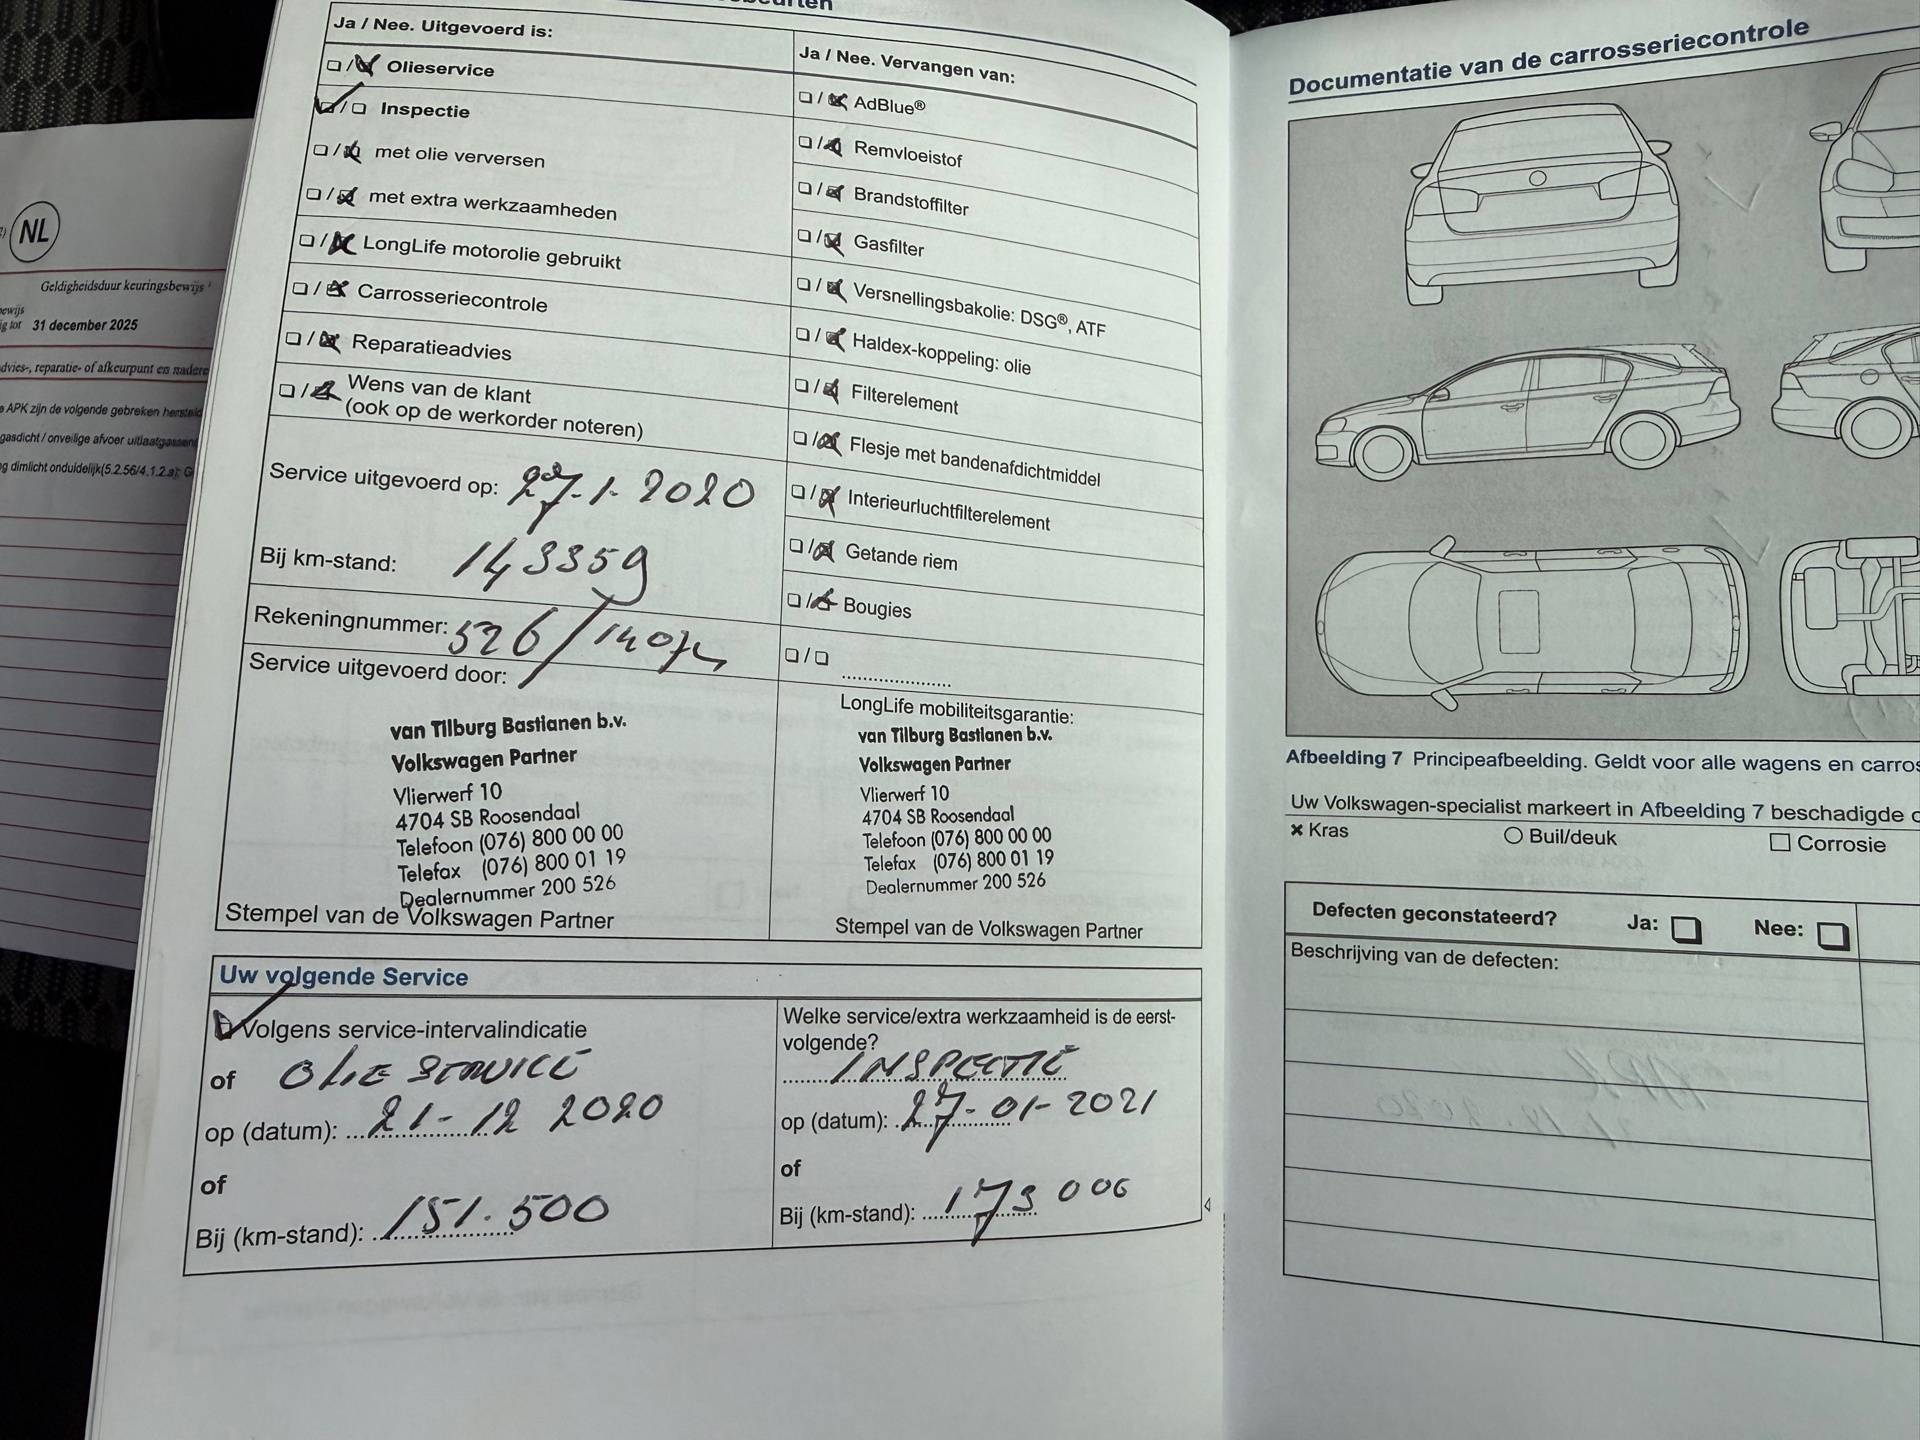 NL
Geldigheidsduur keuringsbewijs
31 december 2025
Ja / Nee. Uitgevoerd is:
Olieservice
Inspectie
met olie verversen
met extra werkzaamheden
LongLife motorolie gebruikt
Carrosseriecontrole
Reparatieadvies
Wens van de klant
(ook op de werkorder noteren)
Service uitgevoerd op: 27-1-2020
Bij km-stand: 143359
Rekeningnummer: 526/
Service uitgevoerd door:
van Tilburg Bastianen b.v.
Volkswagen Partner
Vlierwerf 10
4704 SB Roosendaal
Telefoon (076) 800 00 00
Telefax (076) 800 01 19
Dealernummer 200 526
Stempel van de Volkswagen Partner
Ja / Nee. Vervangen van:
AdBlue®
Remvloeistof
Brandstoffilter
Gasfilter
Versnellingsbakolie: DSG®, ATF
Haldex-koppeling: olie
Filterelement
Flesje met bandenafdichtmiddel
Interieurluchtfilterelement
Getande riem
Bougies
LongLife mobiliteitsgarantie:
van Tilburg Bastianen b.v.
Volkswagen Partner
Vlierwerf 10
4704 SB Roosendaal
Telefoon (076) 800 00 00
Telefax (076) 800 01 19
Dealernummer 200 526
Stempel van de Volkswagen Partner
Uw volgende Service
Volgens service-intervalindicatie
of OLIE SERVICE
op (datum): 21-12 2020
of
Bij (km-stand): 151.500
Welke service/extra werkzaamheid is de eerst-
volgende?
INSPECTIE
op (datum): 27-01-2021
of
Bij (km-stand): 173 000
Documentatie van de carrosseriecontrole
Afbeelding 7 Principeafbeelding. Geldt voor alle wagens en
Uw Volkswagen-specialist markeert in Afbeelding 7 beschadigde
Kras
Buil/deuk
Corrosie
Defecten geconstateerd? Ja: Nee:
Beschrijving van de defecten: